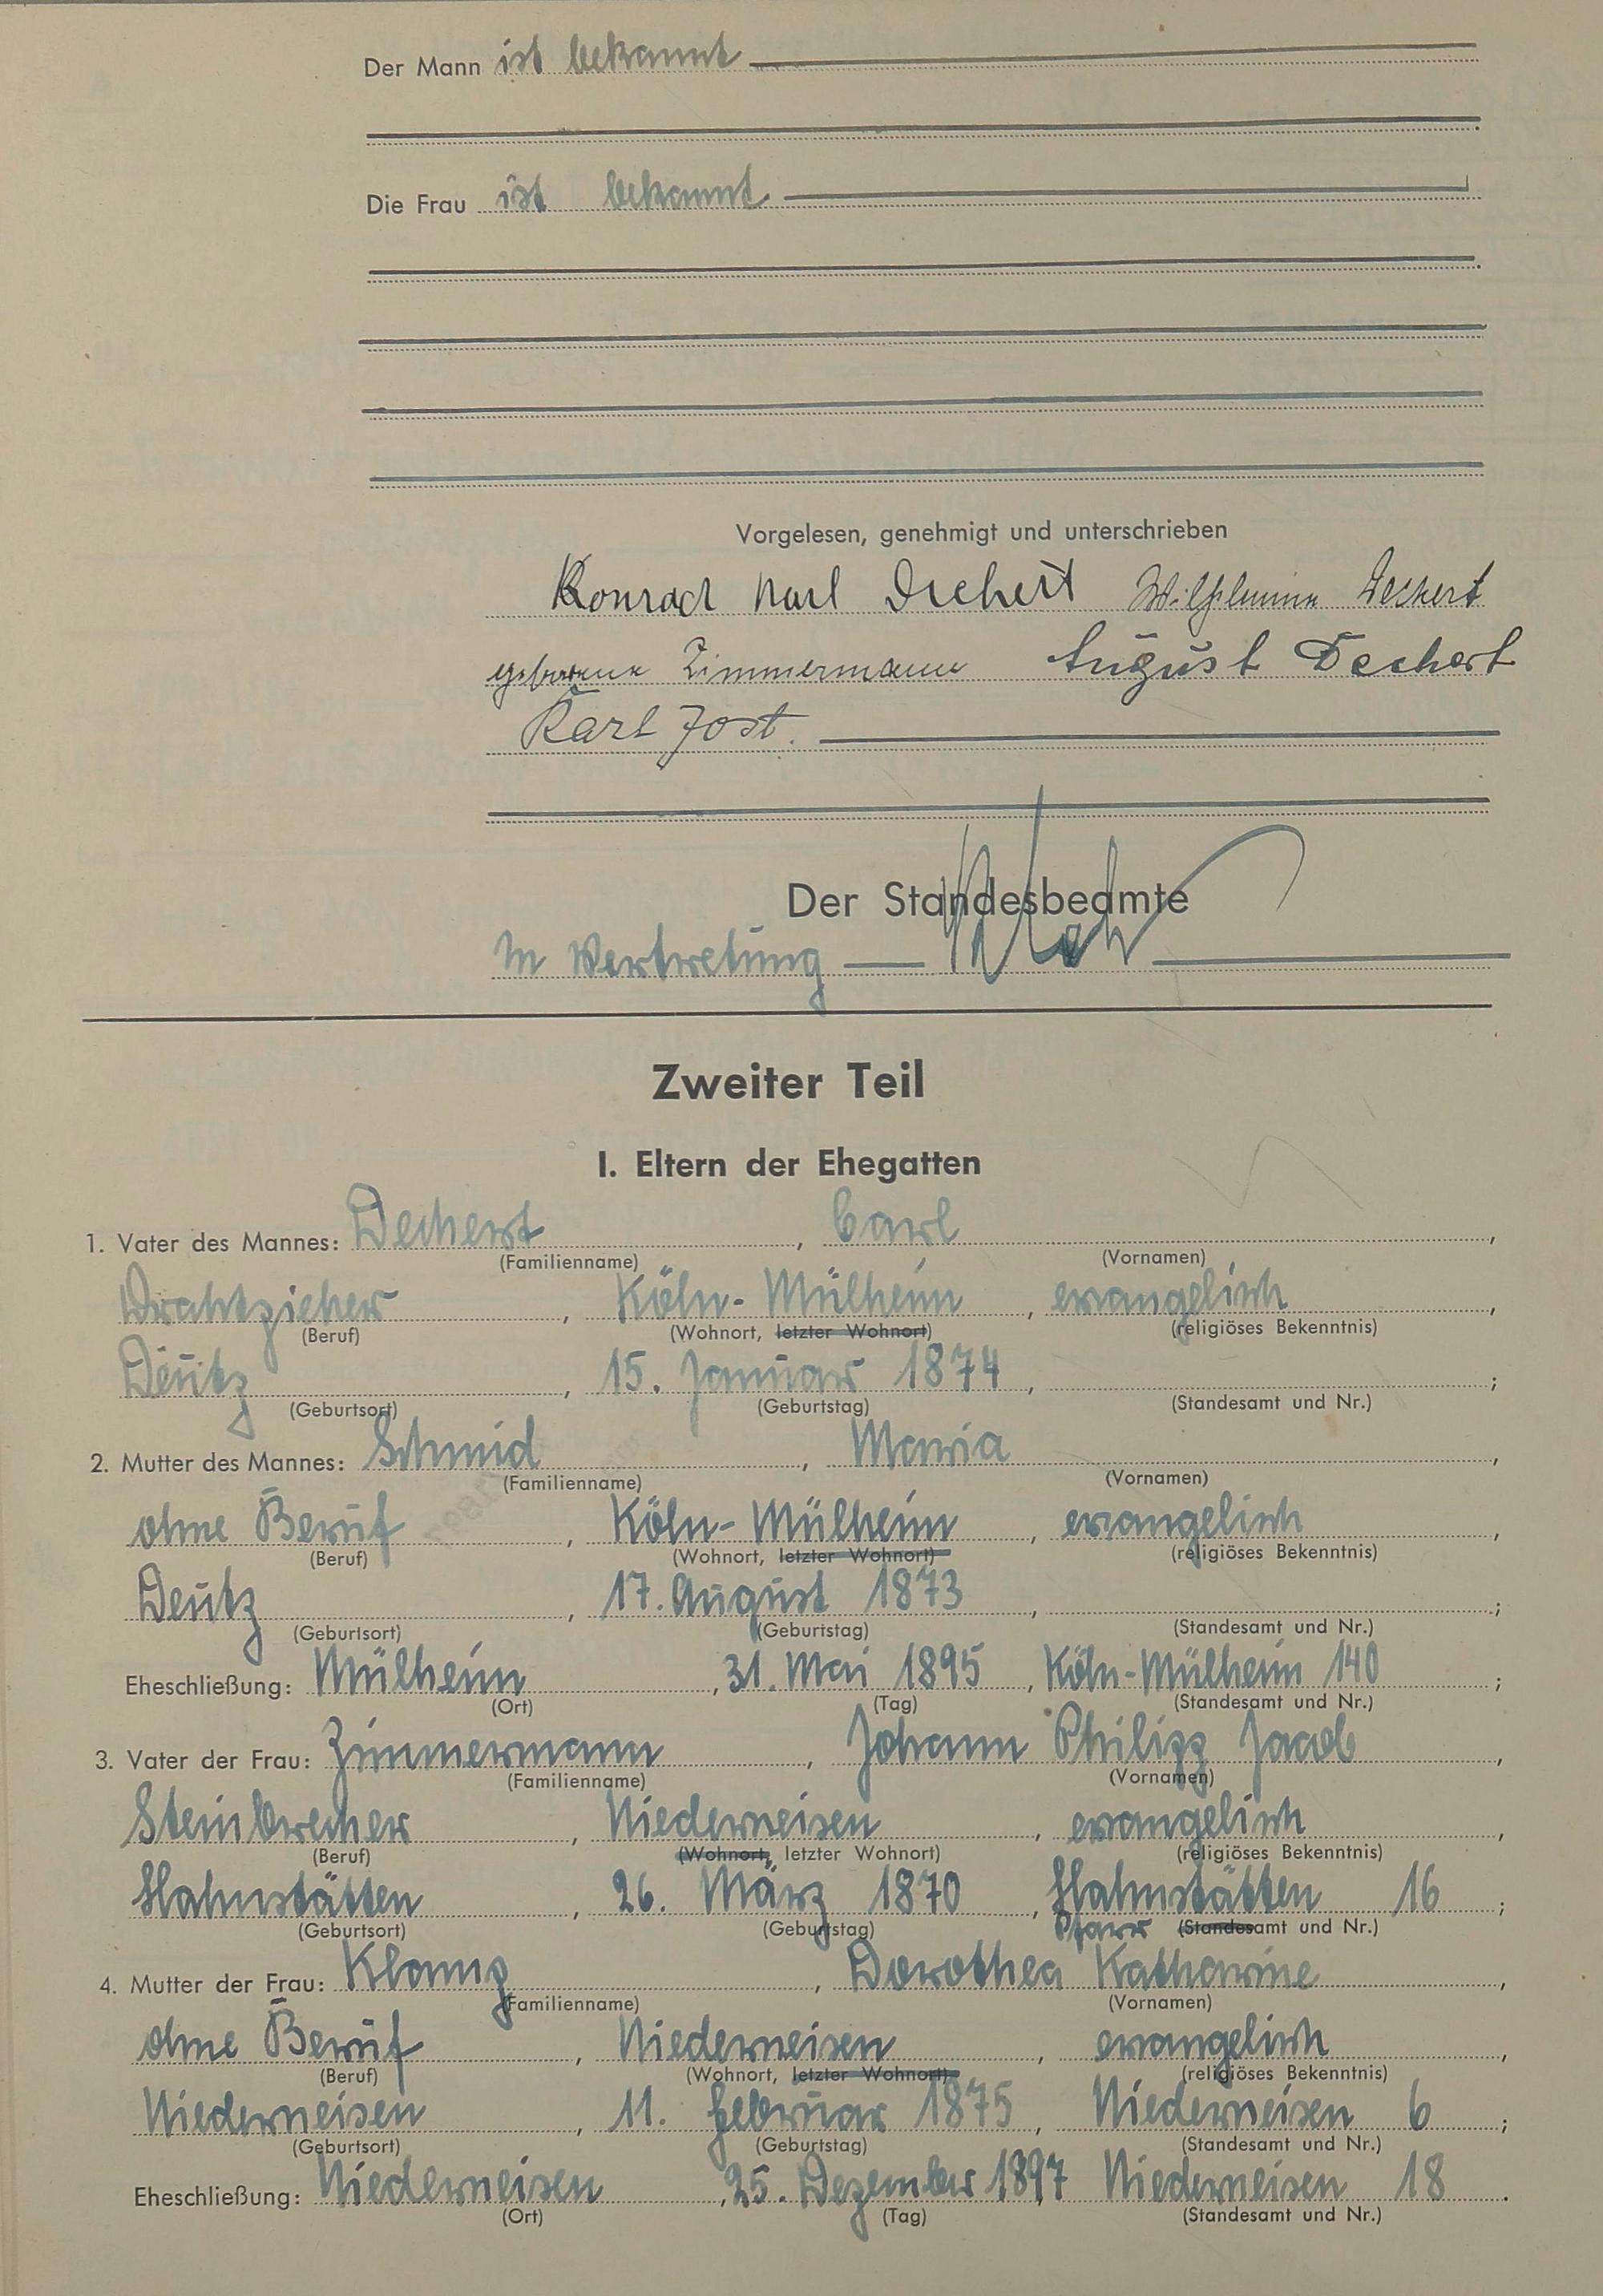 Der Mann ist bekannt
Die Frau ist bekannt
Vorgelesen, genehmigt und unterschrieben
Konrad Karl Dechert Wilhelmine Dechert
geborene Zimmermann August Dechert
Karl Jost.
Der Standesbeamte
In Vertretung
Zweiter Teil
I. Eltern der Ehegatten
1. Vater des Mannes: Dechert, Carl,
(Familienname) (Vornamen)
Drahtzieher, Köln-Mülheim, evangelisch,
(Beruf) (Wohnort, letzter Wohnort) (religiöses Bekenntnis)
Deutz, 15. Januar 1874, ;
(Geburtsort) (Geburtstag) (Standesamt und Nr.)
2. Mutter des Mannes: Schmid, Maria,
(Familienname) (Vornamen)
ohne Beruf, Köln-Mülheim, evangelisch,
(Beruf) (Wohnort, letzter Wohnort) (religiöses Bekenntnis)
Deutz, 17. August 1873, ;
(Geburtsort) (Geburtstag) (Standesamt und Nr.)
Eheschließung: Mülheim, 31. Mai 1895, Köln-Mülheim 140;
(Ort) (Tag) (Standesamt und Nr.)
3. Vater der Frau: Zimmermann, Johann Philipp Jacob,
(Familienname) (Vornamen)
Steinbrecher, Niederneisen, evangelisch,
(Beruf) (Wohnort, letzter Wohnort) (religiöses Bekenntnis)
Hahnstätten, 26. März 1870, Hahnstätten 16;
(Geburtsort) (Geburtstag) Pfarr (Standesamt und Nr.)
4. Mutter der Frau: , Dorothea Katharine,
(Familienname) (Vornamen)
ohne Beruf, Niederneisen, evangelisch,
(Beruf) (Wohnort, letzter Wohnort) (religiöses Bekenntnis)
Niederneisen, 11. Februar 1875, Niederneisen 6;
(Geburtsort) (Geburtstag) (Standesamt und Nr.)
Eheschließung: Niederneisen, 25. Dezember 1897 Niederneisen 18.
(Ort) (Tag) (Standesamt und Nr.)